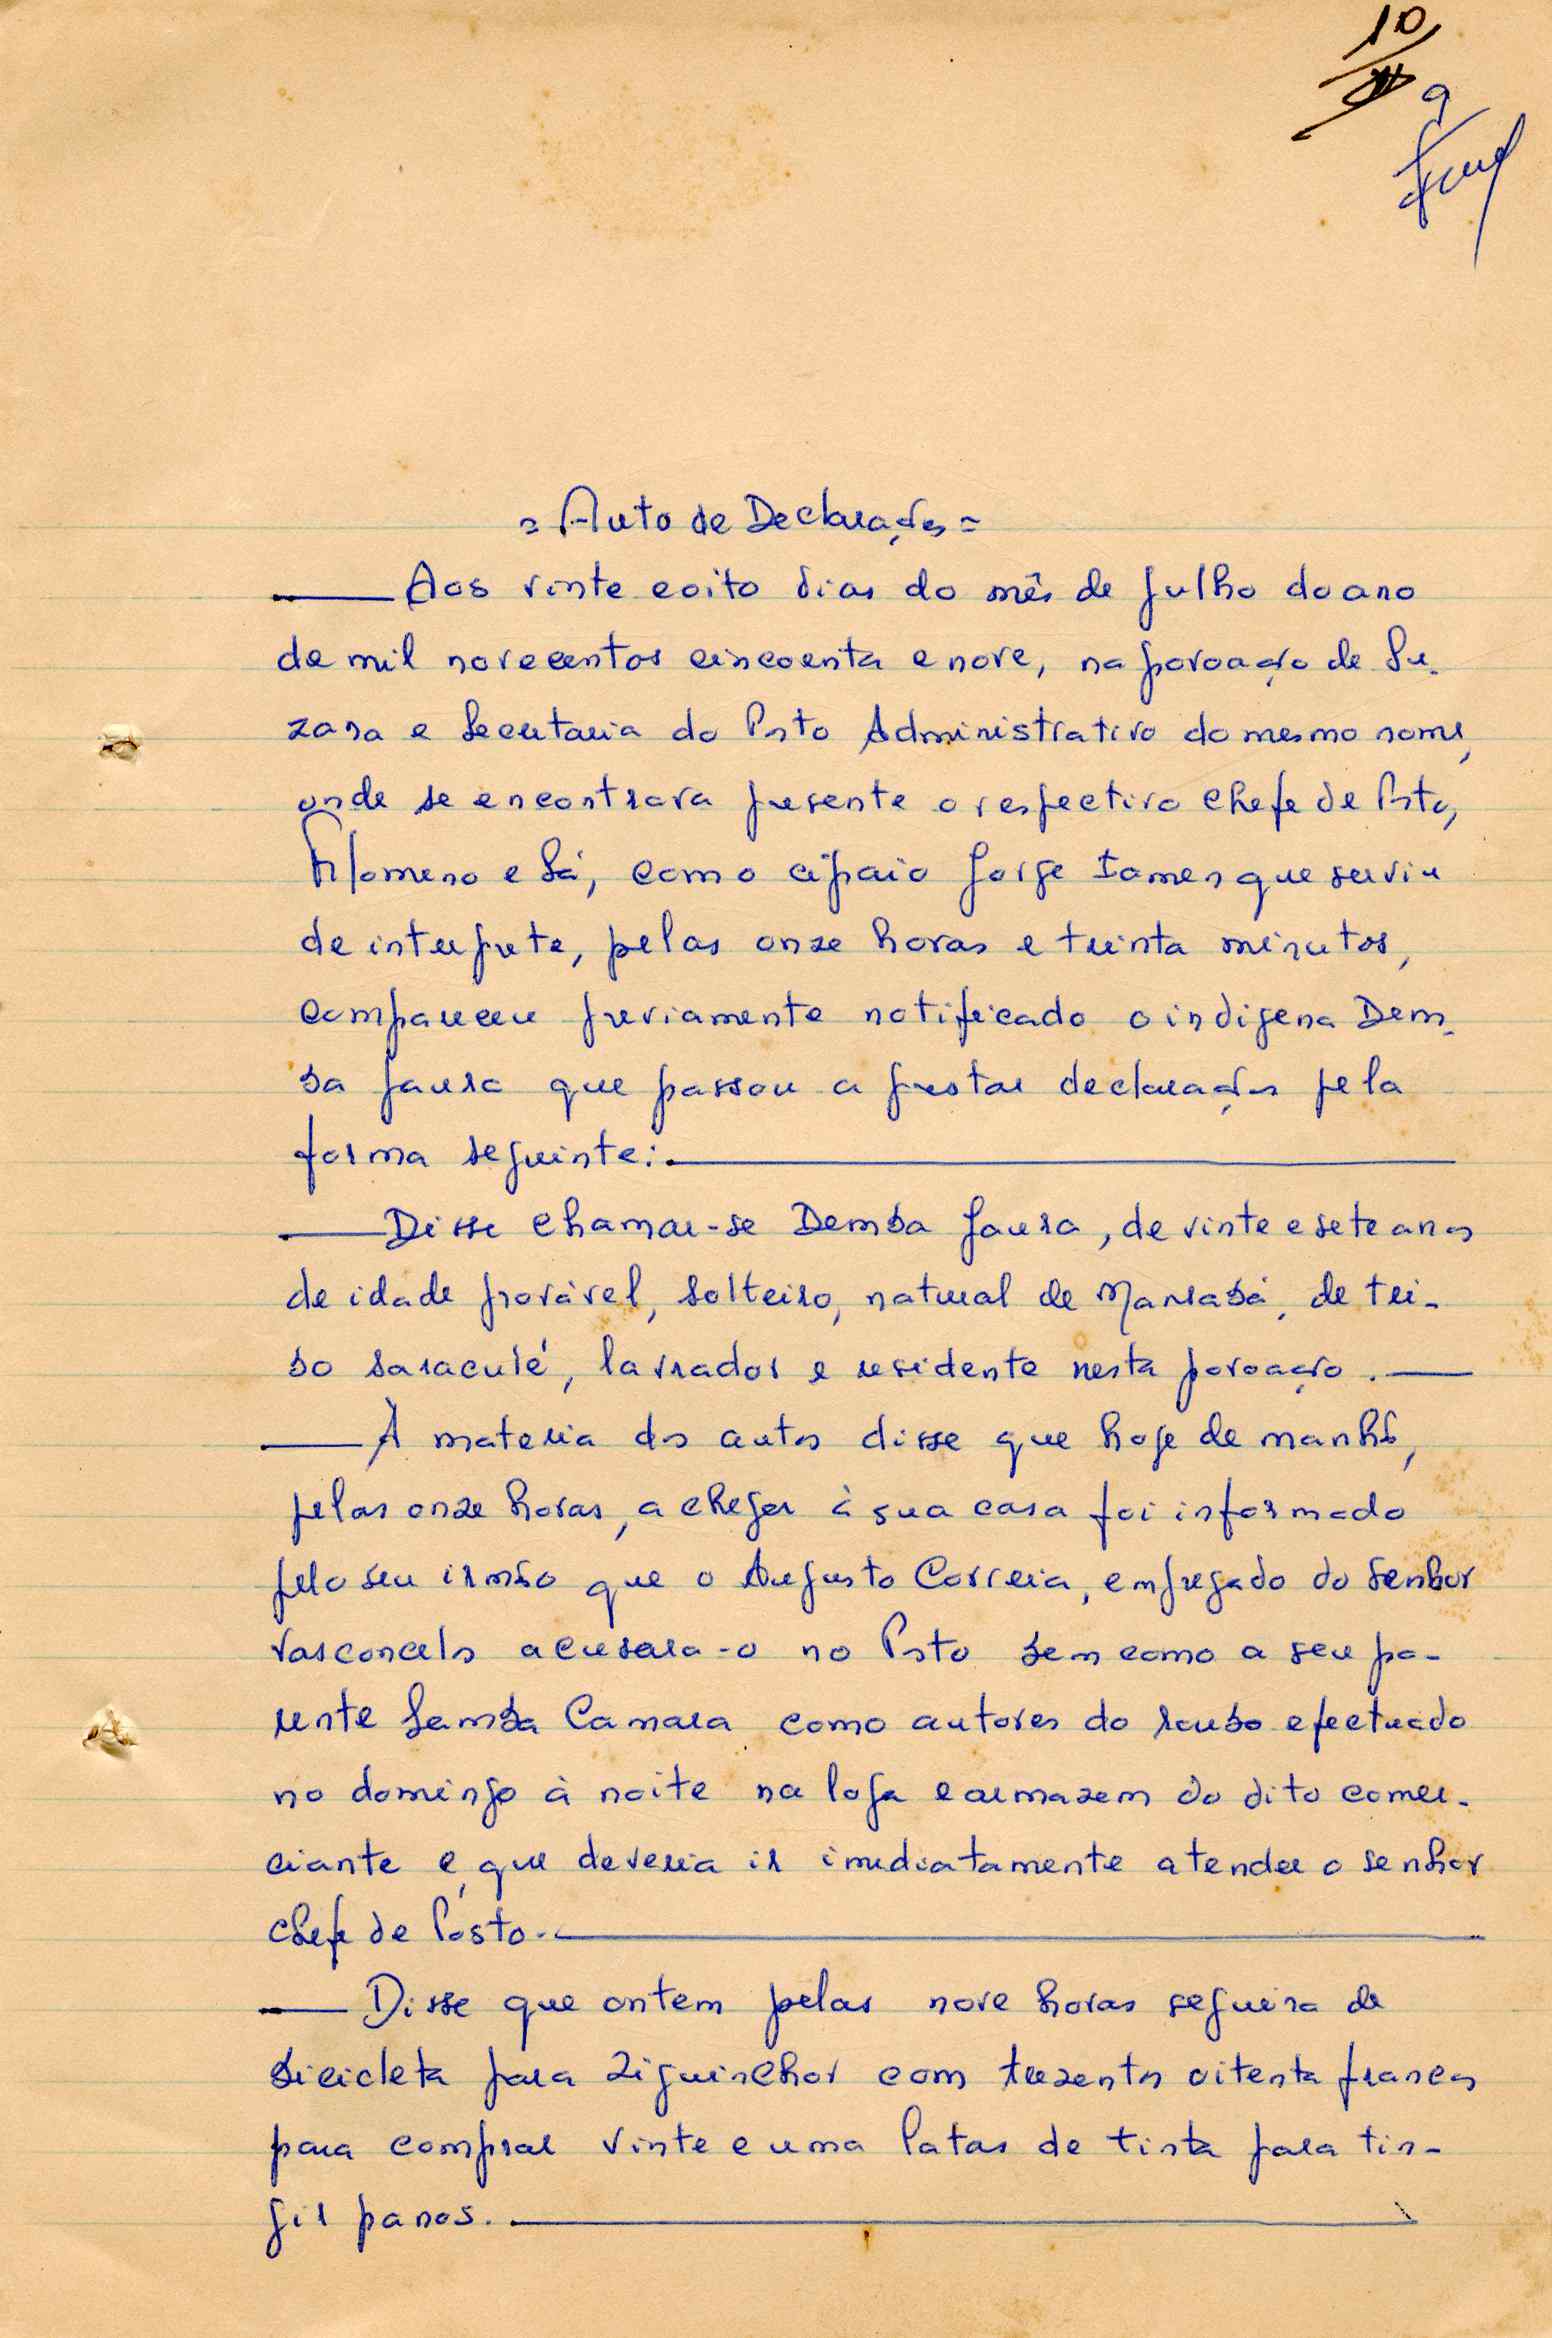 10
9
= Auto de Declarações =
Aos vinte e oito dias do mês de Julho do ano
de mil novecentos cincoenta e nove, na povoação de Su-
zana e Secretaria do Posto Administrativo do mesmo nome,
onde se encontrava presente o respectivo Chefe de Posto,
Filomeno e Sá, com o cipaio Jorge Iamen que serviu
de interprete, pelas onze horas e trinta minutos,
compareceu previamente notificado o indigena Dem-
ba Jaura que passou a prestar declarações pela
forma seguinte:
Disse chamar-se Demba Jaura, de vinte e sete anos
de idade provável, solteiro, natural de Mansabá, de tri-
bo saraculé, lavrador e residente nesta povoação.
À materia dos autos disse que hoje de manhã,
pelas onze horas, a chegar à sua casa foi informado
pelo seu irmão que o Augusto Correia, empregado do Senhor
Vasconcelos acusara-o no Posto bem como a seu pa-
rente Samba Camara como autores do roubo efectuado
no domingo à noite na loja e armazem do dito comer-
ciante e, que deveria ir imediatamente atender o senhor
Chefe de Posto.
Disse que ontem pelas nove horas seguira de
bicicleta para Ziguinchor com trezentos oitenta francos
para comprar vinte e uma latas de tinta para tin-
gir panos.